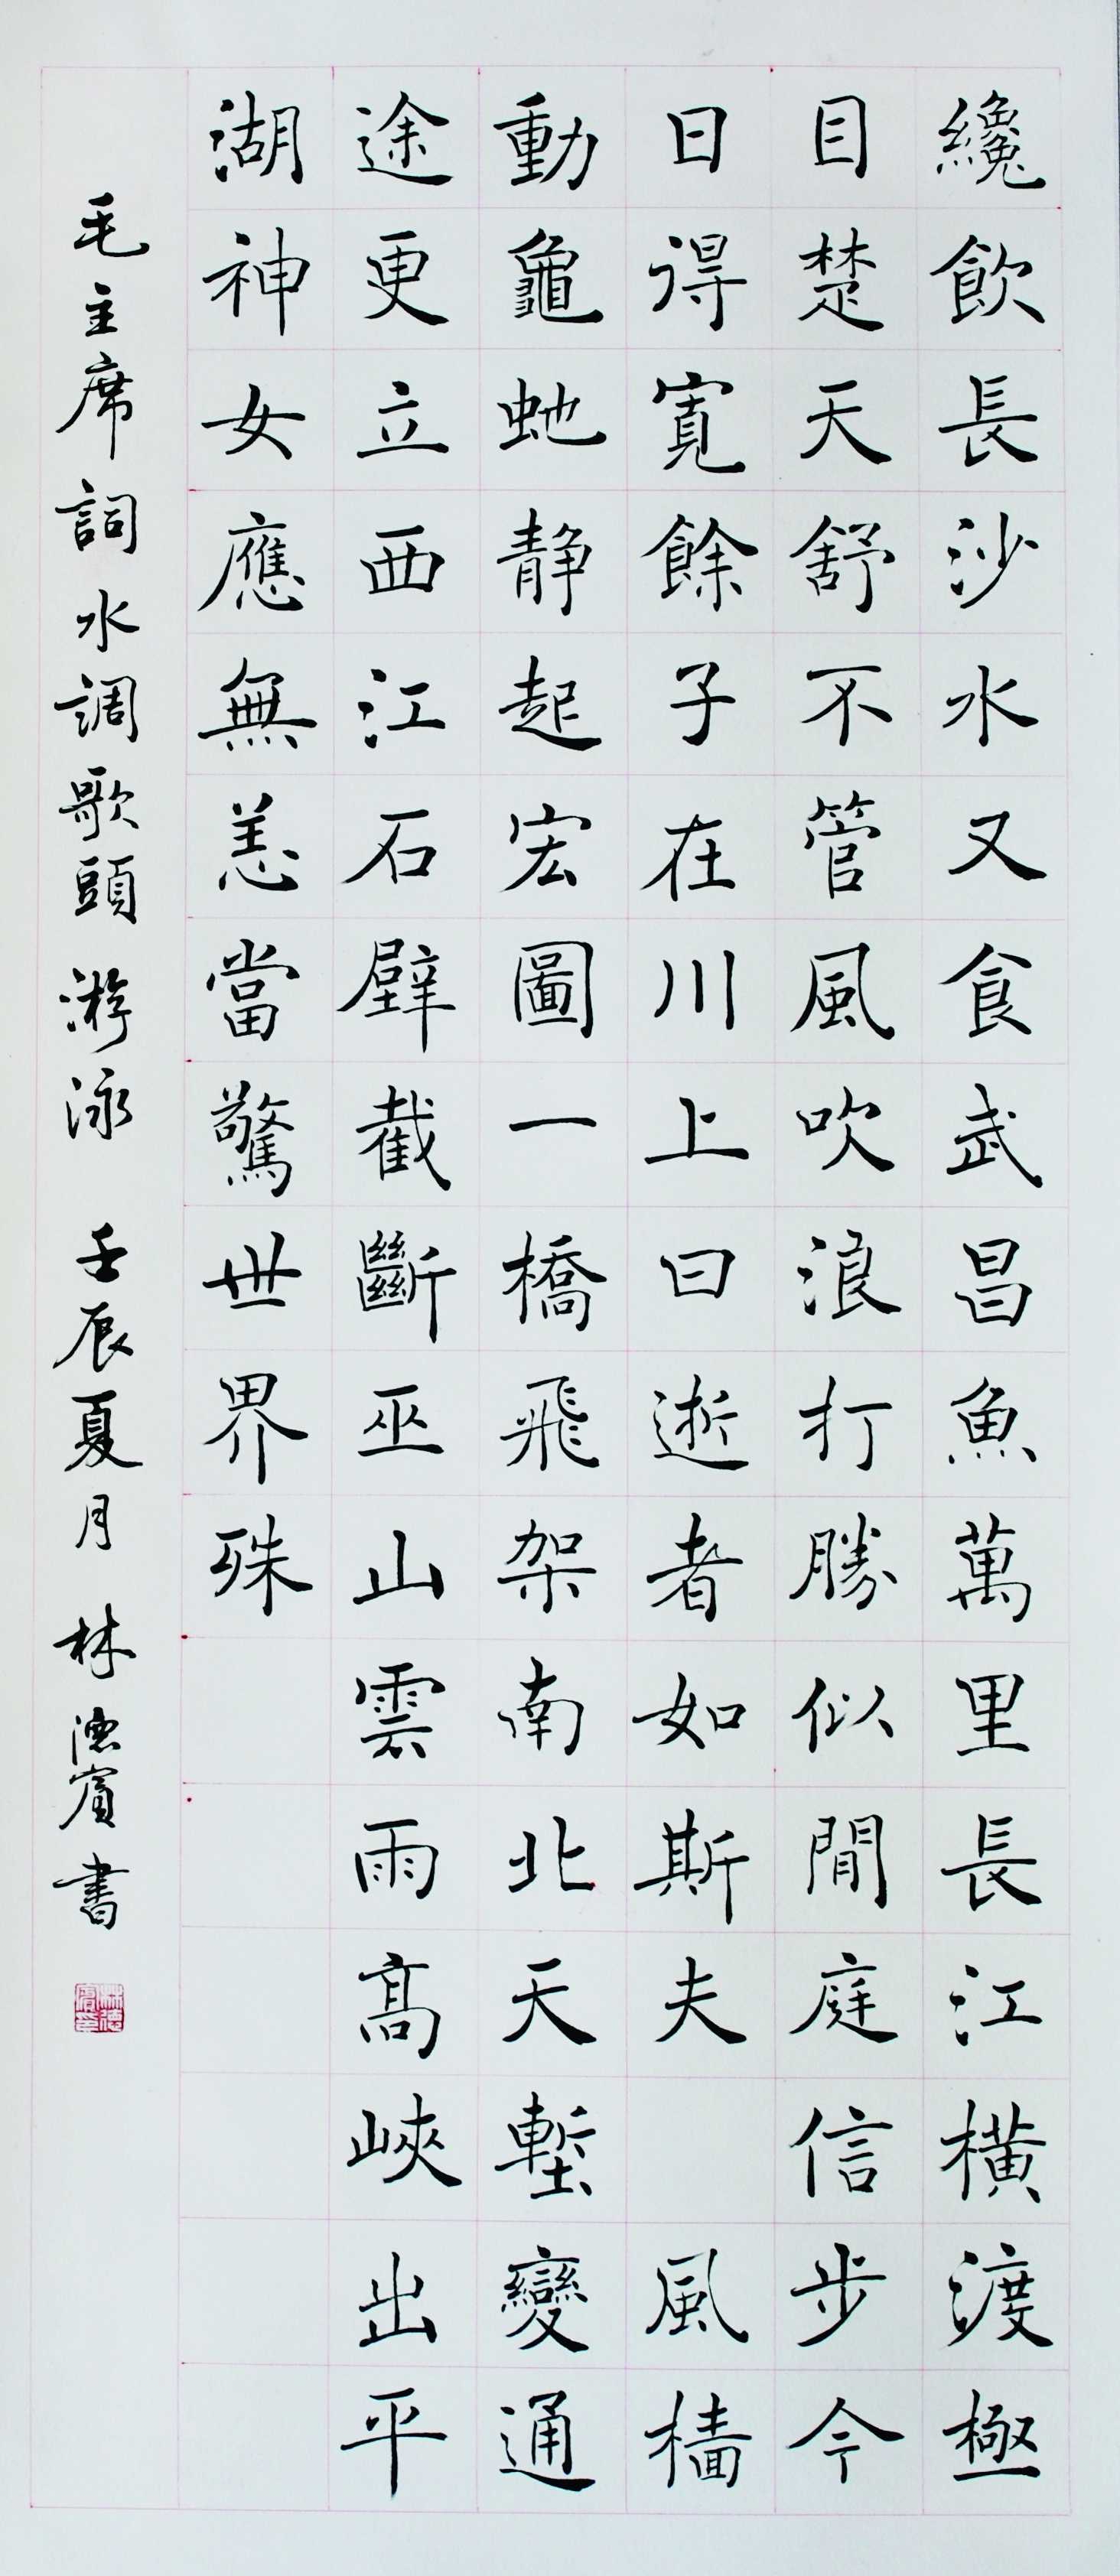 纔飲長沙水又食武昌魚萬里長江橫渡極
目楚天舒不管風吹浪打勝似閒庭信步今
日得寬餘子在川上曰逝者如斯夫 風檣
動龜虵静起宏圖一橋飛架南北天塹變通
途更立西江石壁截斷巫山雲雨髙峽出平
湖神女應無恙當驚世界殊
毛主席詞水調歌頭游泳 壬辰夏月 林德賓書
林德賓印